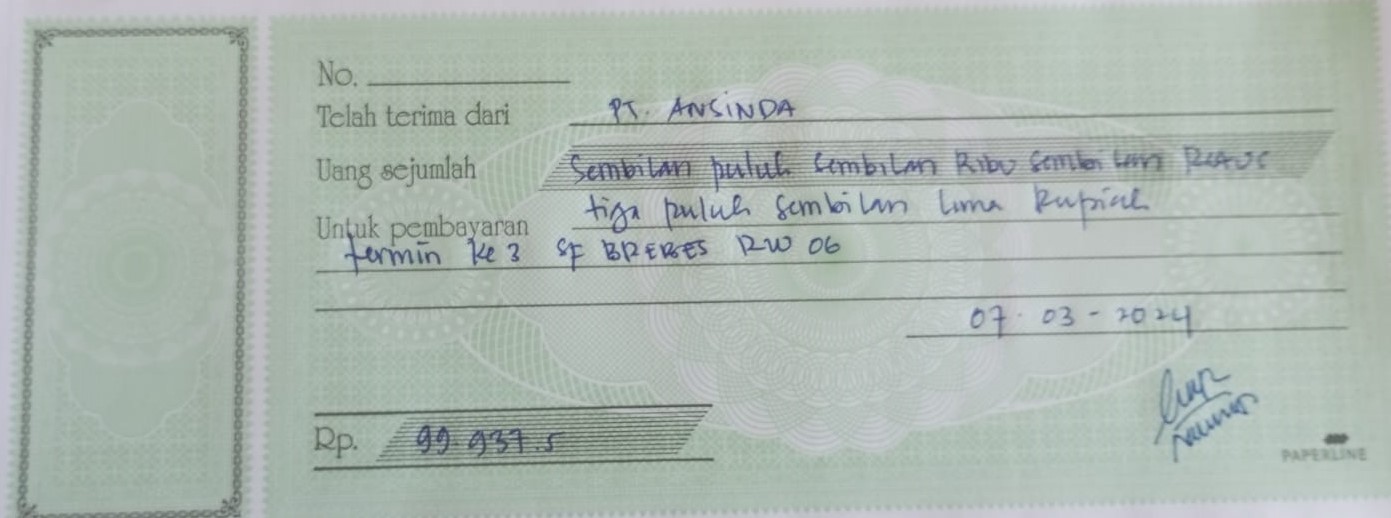 No.
Telah terima dari PT. ANSINDA
Uang sejumlah Sembilan puluh Sembilan Ribu Sembilan Ratus
tiga puluh sembilan lima Rupiah
Untuk pembayaran
termin ke 3 SF BREBES RW 06
07-03-2024
Rp. 99.937.5
PAPERLINE